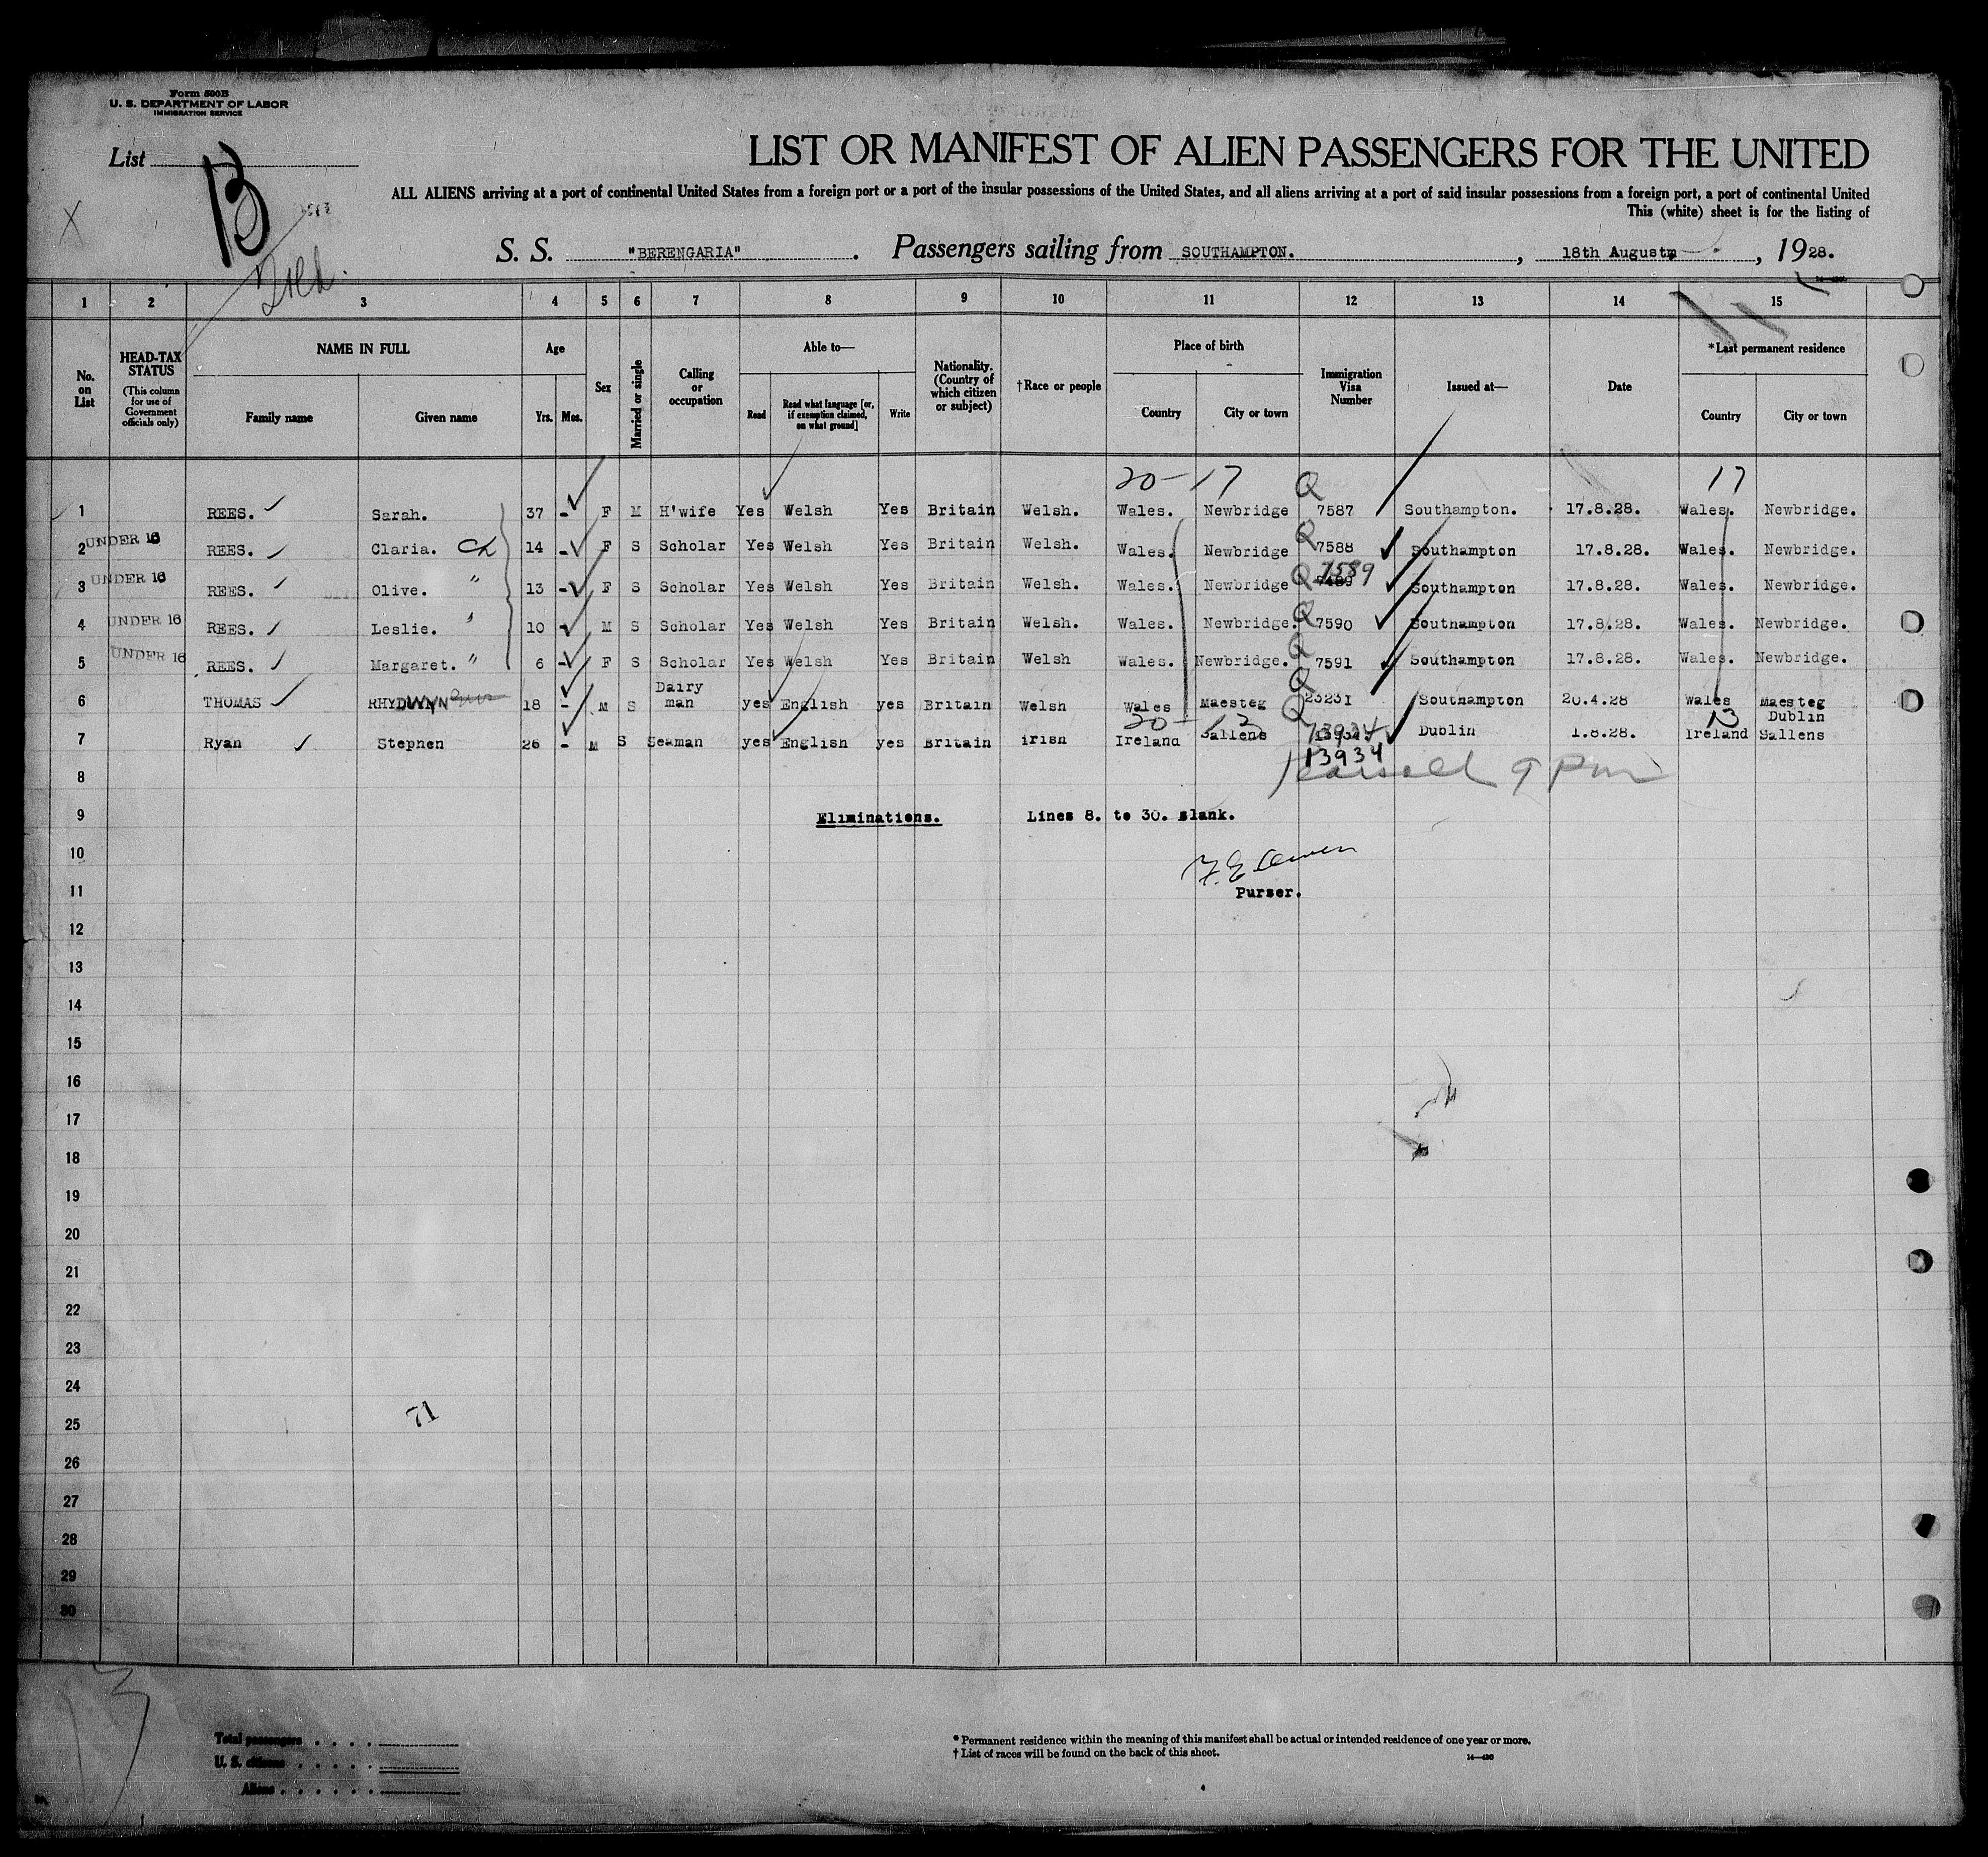 Form 500B
U. S. DEPARTMENT OF LABOR
IMMIGRATION SERVICE
List B
LIST OR MANIFEST OF ALIEN PASSENGERS FOR THE UNITED
ALL ALIENS arriving at a port of continental United States from a foreign port or a port of the insular possessions of the United States, and all aliens arriving at a port of said insular possessions from a foreign port, a port of continental United
This (white) sheet is for the listing of
X
S. S. "BERENGARIA". Passengers sailing from SOUTHAMPTON. , 18th August , 1928.
1 2 3 4 5 6 7 8 9 10 11 12 13 14 15
No. on List
HEAD-TAX STATUS
(This column for use of Government officials only)
NAME IN FULL
Family name Given name
Age
Yrs. Mos.
Sex
Married or single
Calling or occupation
Able to—
Read
Read what language [or, if exemption claimed, on what ground]
Write
Nationality. (Country of which citizen or subject)
†Race or people
Place of birth
Country City or town
Immigration Visa Number
Issued at—
Date
*Last permanent residence
Country City or town
20-17 Q 17
1 REES. Sarah. 37 - F M H'wife Yes Welsh Yes Britain Welsh. Wales. Newbridge 7587 Southampton. 17.8.28. Wales. Newbridge.
2 UNDER 16 REES. Claria. Ch 14 - F S Scholar Yes Welsh Yes Britain Welsh. Wales. Newbridge Q 7588 Southampton 17.8.28. Wales. Newbridge.
3 UNDER 16 REES. Olive. " 13 - F S Scholar Yes Welsh Yes Britain Welsh. Wales. Newbridge Q 7589 7489 Southampton 17.8.28. Wales. Newbridge.
4 UNDER 16 REES. Leslie. " 10 - M S Scholar Yes Welsh Yes Britain Welsh. Wales. Newbridge. Q 7590 Southampton 17.8.28. Wales. Newbridge.
5 UNDER 16 REES. Margaret. " 6 - F S Scholar Yes Welsh Yes Britain Welsh Wales. Newbridge. Q 7591 Southampton 17.8.28. Wales. Newbridge.
6 THOMAS RHYDWYN 18 - M S Dairy man yes English yes Britain Welsh Wales Maesteg Q 23231 Southampton 20.4.28 Wales Maesteg
20-13 Q 13 Dublin
7 Ryan Stephen 26 - M S Seaman yes English yes Britain Irish Ireland Sallens 13934 Dublin 1.8.28. Ireland Sallens
13934
8
9 Eliminations. Lines 8. to 30. Blank.
10
11 Purser.
12
13
14
15
16
17
18
19
20
21
22
23
24
25 71
26
27
28
29
30
Total passengers
U. S. citizens
Aliens
* Permanent residence within the meaning of this manifest shall be actual or intended residence of one year or more.
† List of races will be found on the back of this sheet.
14—430